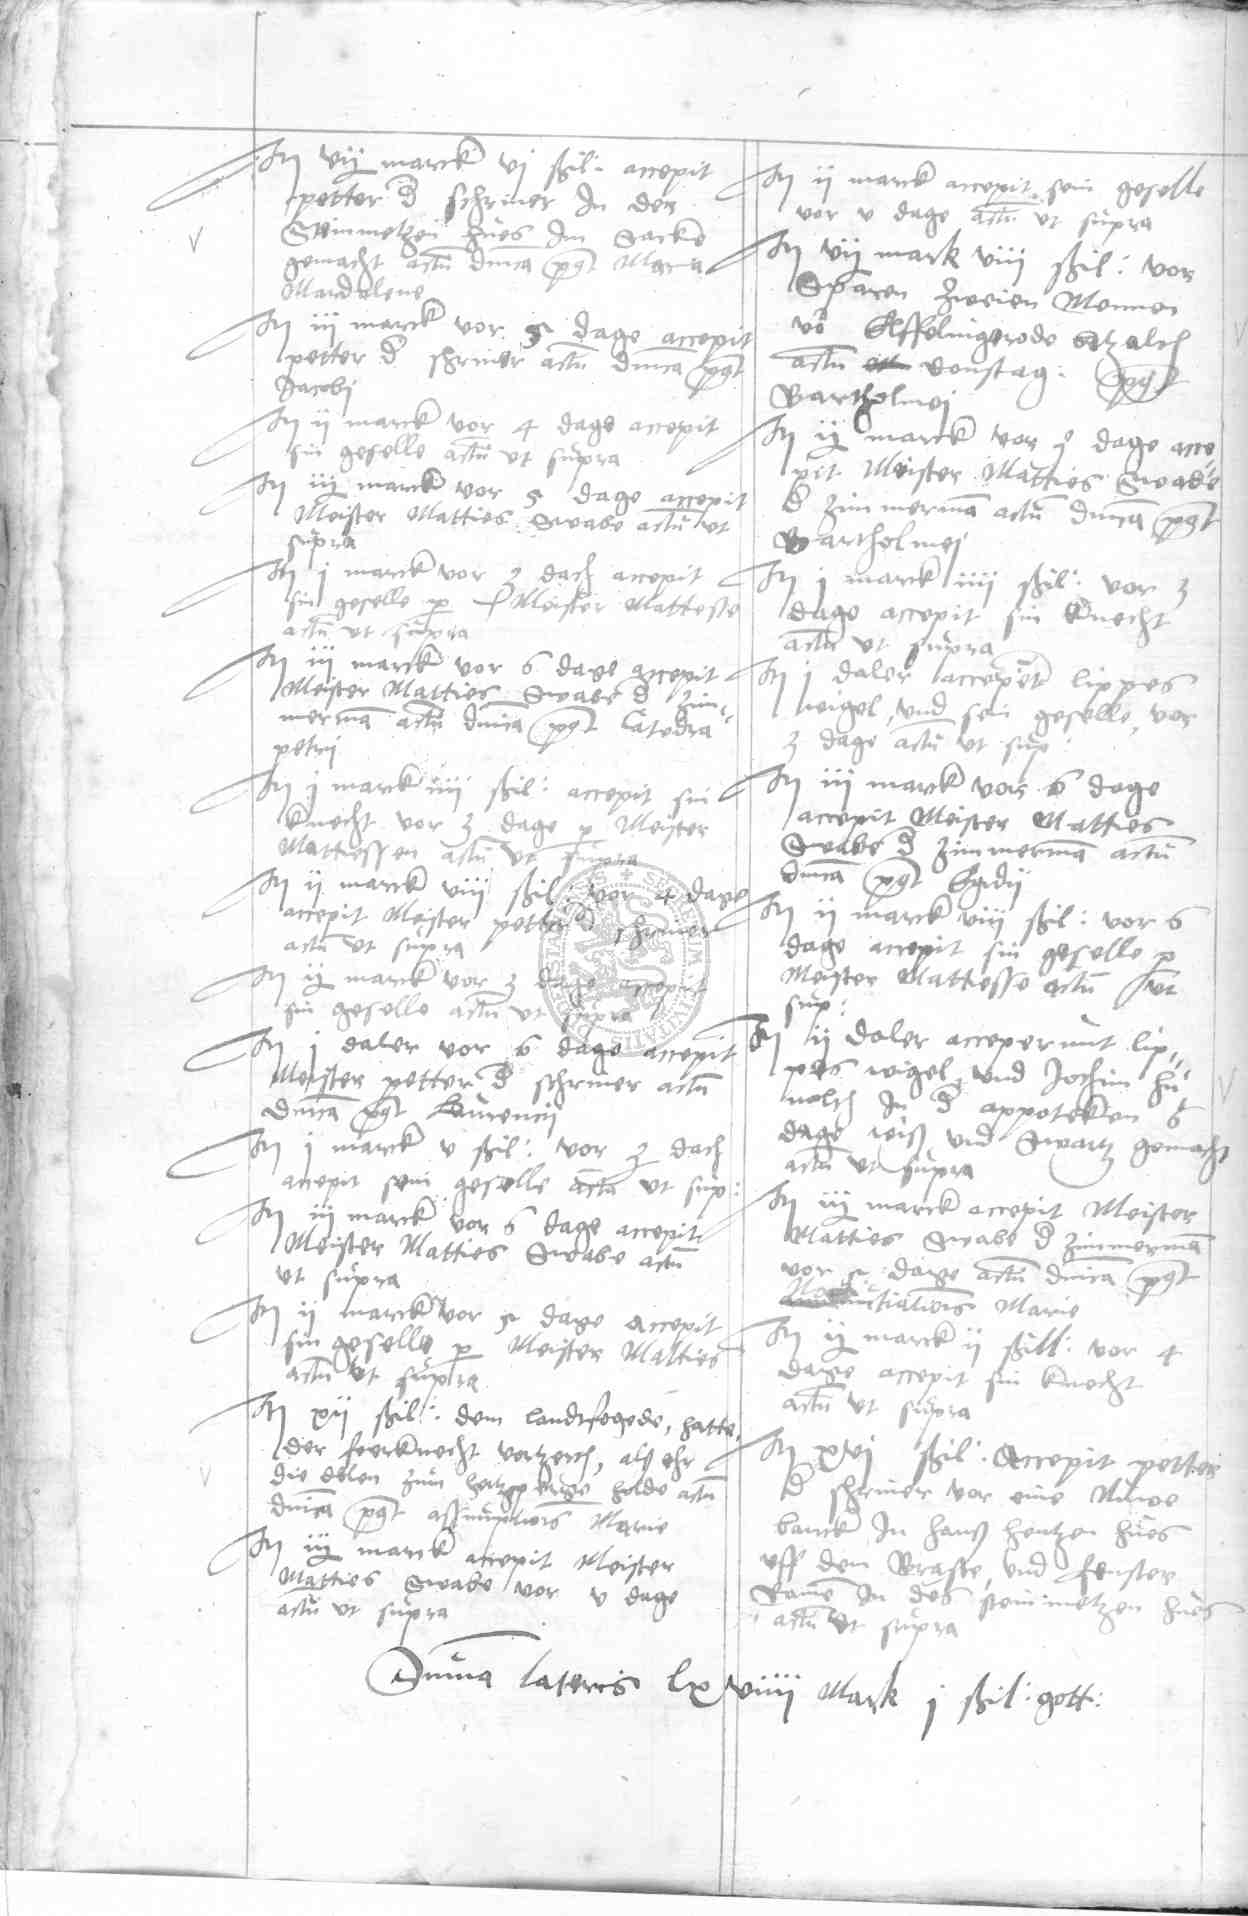 It vij marck vj ßil: accepit
petter d schriner In der
Steinmetzen hues Im Sacke
gemacht actū dnīca pꝰt Maria
Mandalene
It iij marck vor 5 dage accepit
petter d schriner actū dnīca pꝰt
Jacobi
It ij marck vor 4 dage accepit
sin geselle actū vt supra
It iij marck vor 5 dage accepit
Meister Matties Swabe actū vt
supra
It j marck vor 3 dach accepit
sin geselle p Meister Mattesse
actū vt supra
It iij marck vor 6 dage accepit
Meister Matties Swabe d Zim-
mermā actū dnīca pꝰt Catedra
petri
It j marck iiij ßil: accepit sin
knecht vor 3 dage p Meister
Mattiessen actū vt supra
It ij marck viij ßil: vor 4 dage
accepit Meister petter d schriner
actū vt supra
It ij marck vor 3 dage accepit
sin geselle actū vt supra
It j daler vor 6 dage accepit
Meister petter d schriner actū
dnīca pꝰt Laurencij
It j marck v ßil: vor 3 dach
accepit sein geselle actū vt sup:
It iij marck vor 6 dage accepit
Meister Matties Swabe actū
vt supra
It ij marck vor 5 dage accepit
sin geselle p Meister Matties
actū vt supra
It xij ßil: dem landtfogede, hatte
der foerknecht vortzerth, als ehr
die delen zum holde actū
dnīca pꝰt assumptiōis Marie
It iij marck accepit Meister
Matties Swabe vor v dage
actū vt supra
It ij marck accepit sein geselle
vor v dage actū vt supra
It vij mark viij ßil: vor
Sparen zweien Mennen
vō Effelingerode
actū donstag: pꝰt
Bartholmej
It ij marck vor 3 dage acce-
pit Meister Matties Swabe
d zimmermā actū dnīca pꝰt
Bartholmej
It j marck iiij ßil: vor 3
dage accepit sin knecht
actū vt supra
It j daler lippes
weigel, vnd sein geselle, vor
3 dage actū vt sup:
It iij marck vor 6 dage
accepit Meister Matties
Swabe d zimmermā actū
dnīca pꝰt Egidij
It ij marck viij ßil: vor 6
dage accepit sin geselle p
Meister Mattiesse actū vt
sup:
It ij daler acceperunt lip-
pes wigel, vnd Jochim hu-
nolth In d appoteken 6
dage wiß vnd Swartz gemacht
actū vt supra
It iij marck accepit Meister
Matties Swabe d zimmermā
vor 5 dage actū dnīca pꝰt
Marie
It ij marck ij ßill: vor 4
dage accepit sin knecht
actū vt supra
It xvj ßil: Accepit petter
d schriner vor eine Nuwe
banck In hanß hentzen hues
vff dem Graste, vnd fenster
Rame In des steinmetzen hues
actū vt supra
Summa lateris lxviiij Mark j ßil: gott: